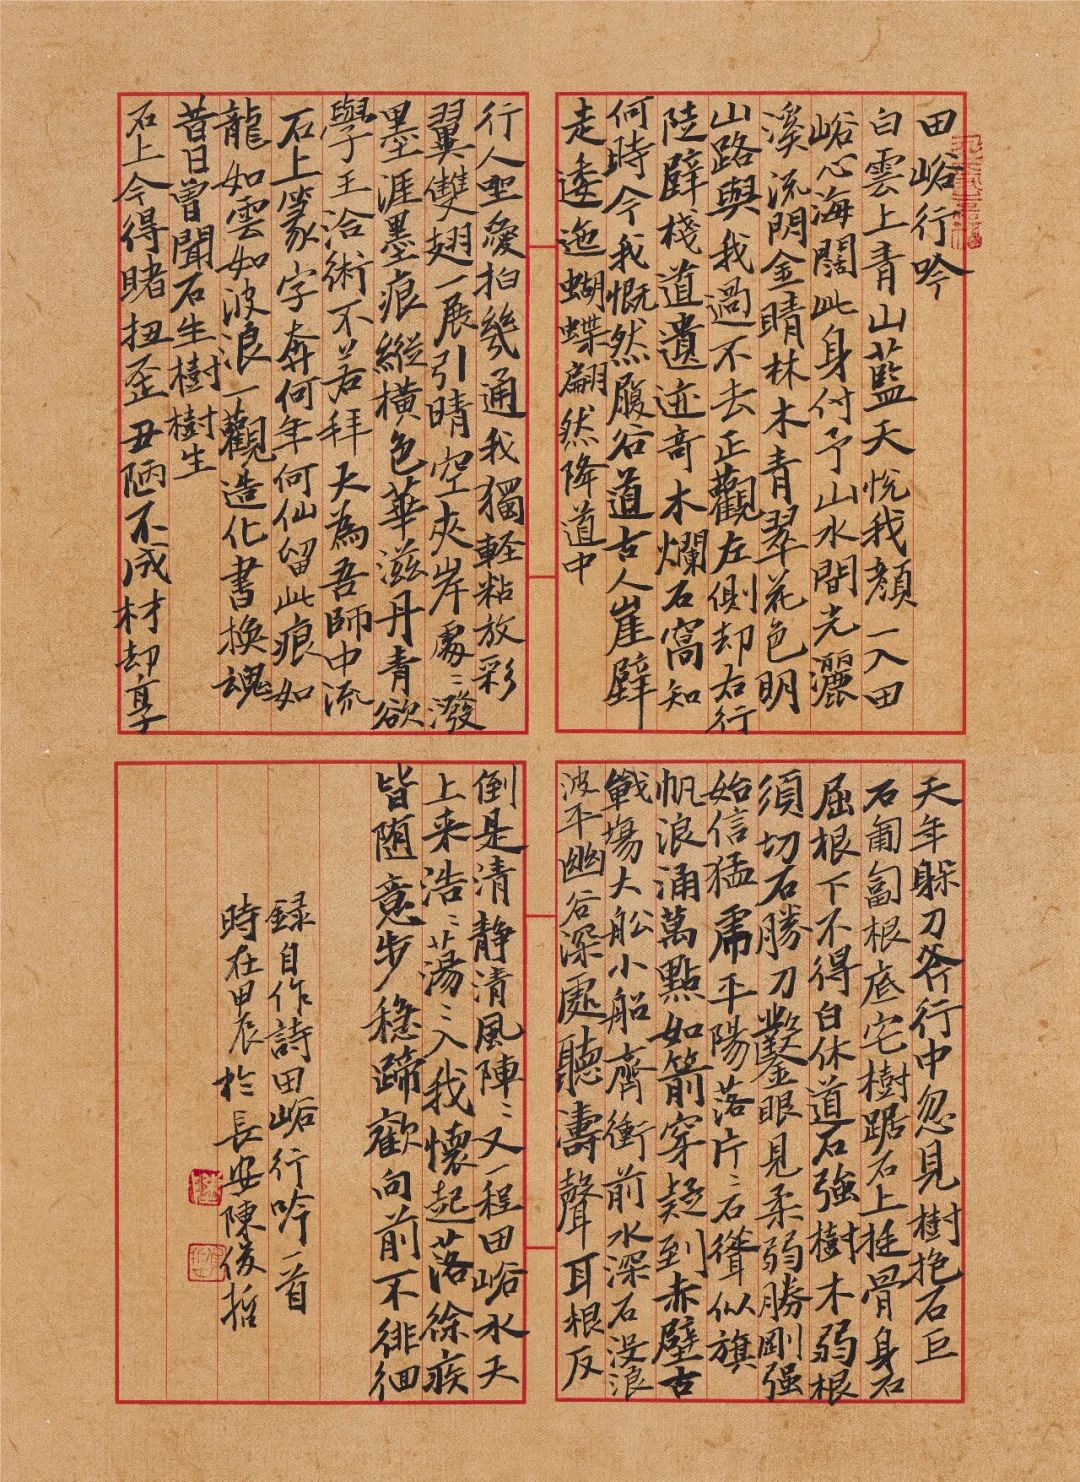 田峪行吟
白雲上青山藍天悦我顔一入田
峪心海闊此身付予山水間光灑
溪流閃金晴林木青翠花色明
山路與我過不去正觀左側却右行
陡壁棧道遺迹奇木爛石窩知
何時今我慨然履谷道古人崖壁
走逶迤蝴蝶翩然降道中
行人至愛拍幾通我獨輕粘放彩
翼雙翅一展引晴空夾岸處〻潑
墨涯墨痕縱橫色華滋丹青欲
學王洽術不若拜天為吾師中流
石上篆字奔何年何仙留此痕如
龍如雲如波浪一觀造化書換魂
昔日曾聞石生樹樹生
石上今得睹扭歪丑陋不成材却享
天年躲刀斧行中忽見樹抱石巨
石匍匐根底宅樹踞石上挺骨身石
屈根下不得白休道石強樹木弱根
須切石勝刀鑿眼見柔弱勝剛强
始信猛虎平陽落片〻石聳似旗
帆浪涌萬點如箭穿疑到赤壁古
戰場大船小船齊衝前水深石没浪
波平幽谷深處聽濤聲耳根反
倒是清静清風陣〻又一程田峪水天
上来浩〻蕩〻入我懷起落徐疾
皆随意步穩蹄歡向前不徘徊
録自作詩田峪行吟一首
時在甲辰於長安陳俊哲